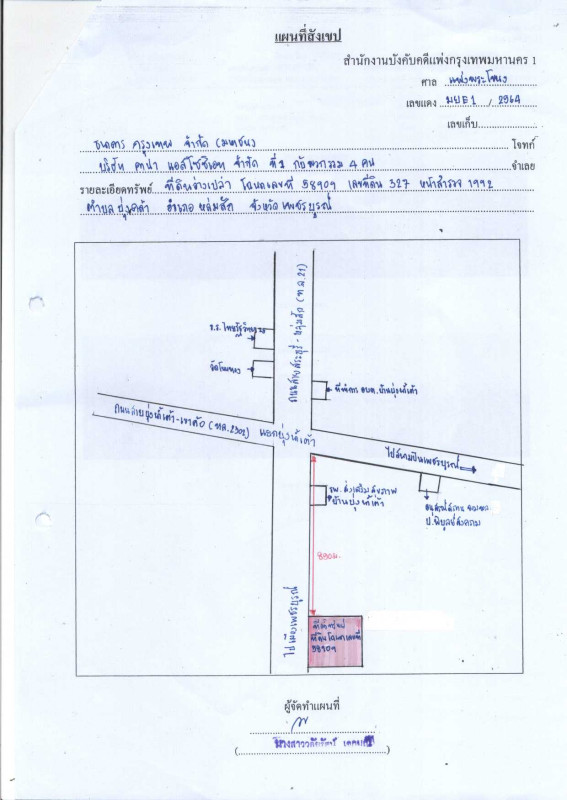 แผนที่สังเขป
สำนักงานบังคับคดีแพ่งกรุงเทพมหานคร 1
ศาล แพ่งพระโขนง
เลขแดง ผบE1 / 2964
เลขเก็บ
ธนาคาร กรุงเทพ จำกัด (มหาชน) โจทก์
บริษัท แอสโซซิเอท จำกัด ที่ 1 กับพวกรวม 4 คน จำเลย
รายละเอียดทรัพย์ ที่ดินว่างเปล่า โฉนดเลขที่ 58909 เลขที่ดิน 327 หน้าสำรวจ 1992
ตำบล บุ่งคล้า อำเภอ หล่มสัก จังหวัด เพชรบูรณ์
ถนนสายสระบุรี - หล่มสัก (ท.ล.21)
ร.ร. ไทยรัฐวิทยา
ที่ทำการ อบต. บ้านบุ่งน้ำเต้า
ถนนสายบุ่งน้ำเต้า-เขาค้อ (ทล.2302) แยกบุ่งน้ำเต้า
ไปสนามบินเพชรบูรณ์
รพ. ส่งเสริมสุขภาพ
บ้านบุ่งน้ำเต้า
อนุสรณ์สถาน จอมพล
ป.พิบูลย์สงคราม
890ม.
ไปเมืองเพชรบูรณ์
ที่ตั้งทรัพย์
ที่ดินโฉนดเลขที่
58909
ผู้จัดทำแผนที่